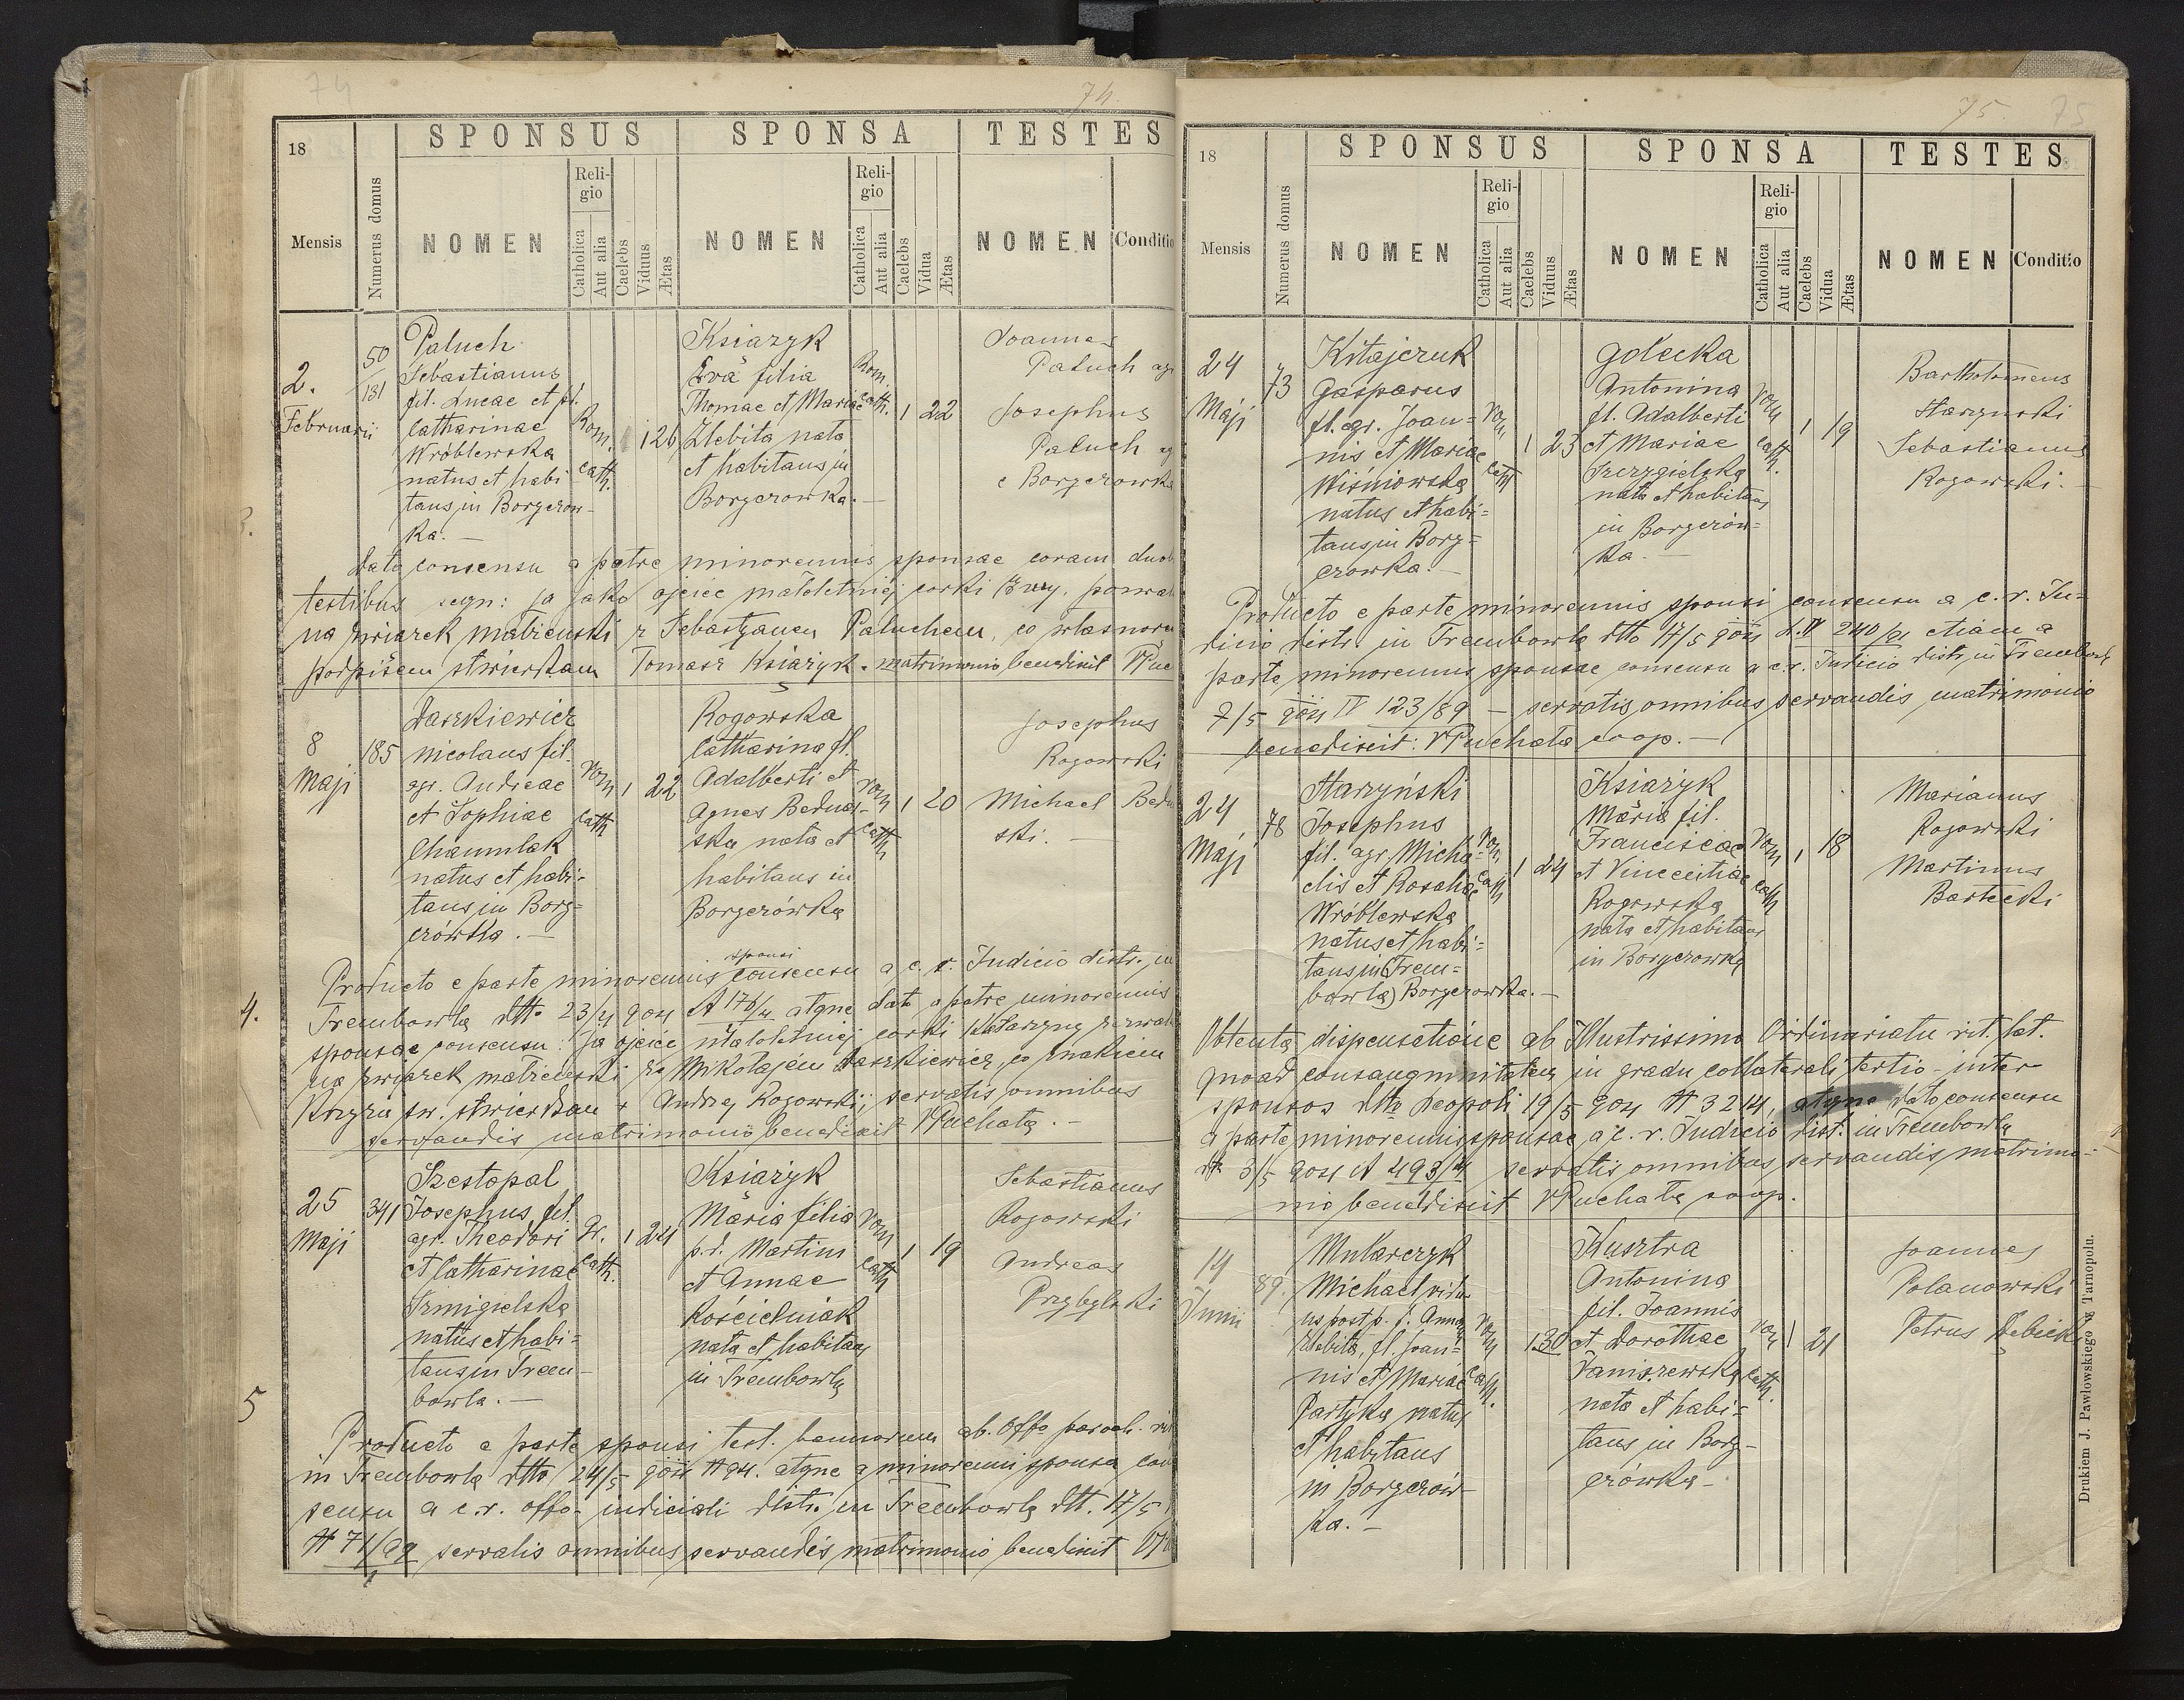 74
74
18
SPONSUS SPONSA TESTES
Mensis
Numerus domus
NOMEN
Religio
Catholica
Aut alia
Caelebs
Viduus
Ætas
NOMEN
Religio
Catholica
Aut alia
Caelebs
Vidua
Ætas
NOMEN
Conditio
2.
Februarii
50
131
Paluch
Sebastianus
fil. Lucae et
Catharinae
Wróblewska
natus et habi
tans in Borzerow-
ka. —
Rom.
cath.
1 26
Książyk
Eva filia
Thomae et Mariae
Zlebita nata
et habitans in
Borzerowka. —
Rom.
cath.
1 22
Joannes
Paluch agr
Josephus
Paluch ag
e Borzerowka
Dato consensu a patre minorennis sponsae coram duob
testibus segn: ja jako ojciec małoletniéj corki Ewy, pozwal
na związek małżeński z Sebastyanem Paluchem, co własnorę
podpisem stwierdzam Tomasz Książyk. matrimonio benedixit
4.
8
Maji
185
Daszkiewicz
Nicolaus fil.
agr. Andreae
et Sophiae
Chaumlak
natus et habi-
tans in Borz-
erówka. —
rom
cath
1 22
Rogowska
Catharina fl.
Adalberti et
Agnes Bednar-
ska nata et
habitans in
Borzerówka
rom
cath
1 20
Josephus
Rogowski
Michael Bedn
ski. —
Producto e parte minorennis sponsi consensu a c. r. Judicio distr. in
Trembowla dtto 23/4 904 A 176/4 atque dato a patre minorennis
sponsae consensu: ja ojciec małoletniej corki Katarzyny zezwala
na związek małżeński z Mikołajem Daszkiewicz, co znakiem
Krzyża św. stwierdzam + Andrzej Rogowski; servatis omnibus
servandis matrimonio benedixit VPuchata. —
5
25
Maji
341
Szestopal
Josephus fil.
agr. Theodori
et Catharinae
Trmigielska
natus et habi-
tans in Trem-
bowla. —
Gr.
cath.
1 24
Książyk
Maria filia
p. d. Martini
et Annae
Kościelniak
nata et habitans
in Trembowla
rom
cath
1 19
Sebastianus
Rogowski
Andreas
Przybylski
Producto e parte sponsi test. bannorum ab. Offo paroch. rit
in Trembowla dtto 24/5 904 N 94. atque a minorenni sponsa con
sensu a c. r. offo. judiciali distr. in Trembowla dtt. 17/5
N 71/99 servatis omnibus servandis matrimonio benedixit
75
75
18
SPONSUS SPONSA TESTES
Mensis
Numerus domus
NOMEN
Religio
Catholica
Aut alia
Caelebs
Viduus
Ætas
NOMEN
Religio
Catholica
Aut alia
Caelebs
Vidua
Ætas
NOMEN
Conditio
24
Maji
73
Kitajczuk
Gasparus
fl. agr. Joan-
nis et Mariae
Wiśniowska
natus et habi-
tans in Borz-
erowka. —
rom.
cath
1 23
Golecka
Antonina
fl. Adalberti
et Mariae
Trzrzgielska
nata et habitans
in Borzerów-
ka. —
rom
cath.
1 19
Bartholomeus
Starzynski
Sebastianus
Rogowski. —
Producto e parte minorennis sponsi consensu a c. r. Ju-
dicio distr. in Trembowla dtto 17/5 904 L. IV 240/91 etiam a
parte minorennis sponsae consensu a c. r. Judicio distr. in Trembowla
7/5 904 IV 123/89 — servatis omnibus servandis matrimonio
benedixit: VPuchata coop. —
24
Maji
78
Starzyński
Josephus
fil. agr. Micha-
elis et Rosaliae
Wróblewska
natus et habi-
tans in (Trem-
bowla) Borzerowka. —
rom.
cath
1 24
Książyk
Maria fil.
Franciscae
et Vincentiae
Rogowska
nata et habitans
in Borzerowka
rom
cath
1 18
Marianus
Rogowski
Martinus
Bartecki
Obtenta dispensatione ab Illustrissimo Ordinariatu rit. lat.
quoad consanguinitatem in gradu collaterali tertio inter
sponsos dtto Leopoli 19/5 904 N 3214, atque dato consensu
a parte minorennis sponsae a c. r. Judicio dist. in Trembowla
dt. 3/5 904 A 493/4 servatis omnibus servandis matrimo-
nio benedixit VPuchata coop.
14
Junii
89.
Mularczyk
Michael vidu-
us post p. d. Anna
Zlebita, fl. Joan-
nis et Mariae
Partyka natus
et habitans
in Borzerów-
ka. —
rom
cath.
1 30
Kusztra
Antonina
fil. Joannis
et Dorothae
Daniszewska
nata et habi-
tans in Borz-
erówka —
rom
cath.
1 21
Joannes
Polanowski
Petrus Dębicki
Drukiem J. Pawłowskiego w Tarnopolu.